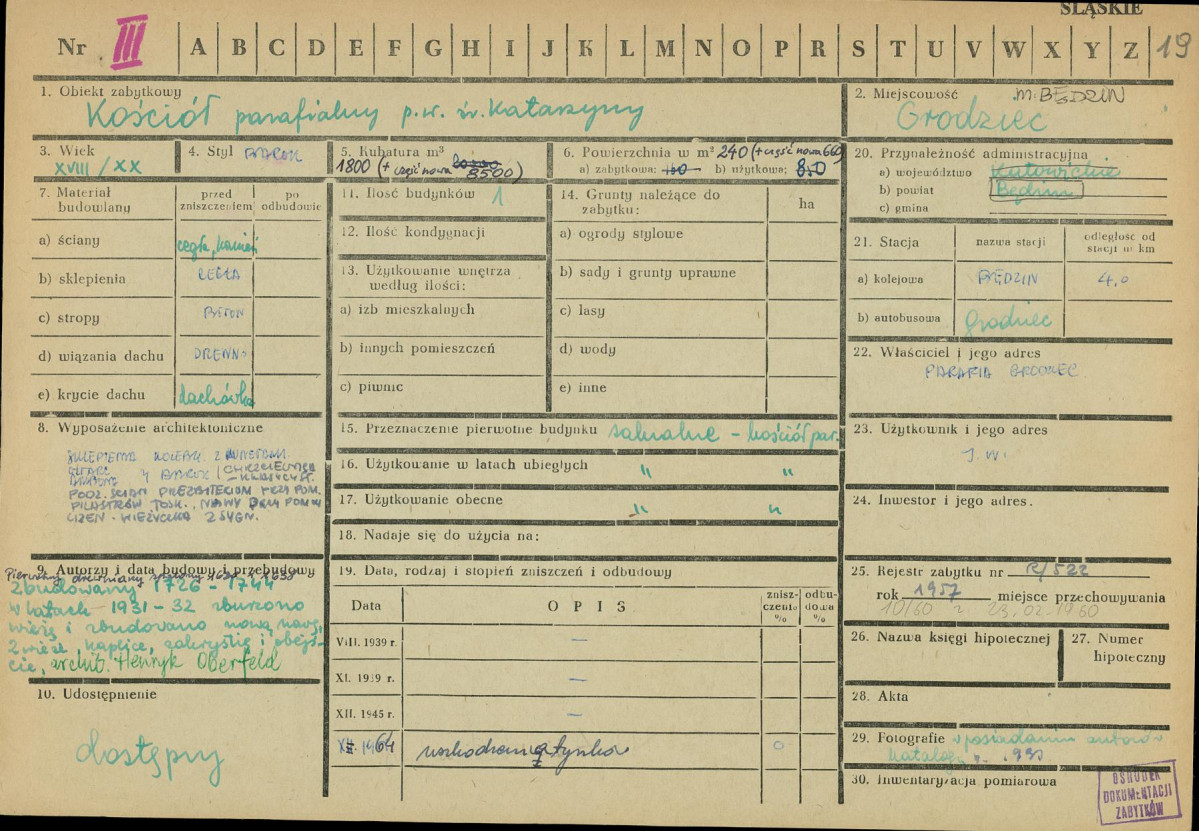 ŚLĄSKIE
Nr III A B C D E F G H I J K L M N O P R S T U V W X Y Z 19
1. Obiekt zabytkowy
Kościół parafialny p.w. św. Katarzyny
2. Miejscowość m. BĘDZIN
Grodziec
3. Wiek
XVIII / XX
4. Styl BAROK
5. Kubatura m³
1800 (+ część nowa 8500)
6. Powierzchnia w m² 240 (+ część nowa 660)
a) zabytkowa: b) użytkowa: 850
20. Przynależność administracyjna
a) województwo Katowickie
b) powiat Będzin
c) gmina
7. Materiał budowlany
przed zniszczeniem
po odbudowie
a) ściany cegła, kamień
b) sklepienia CEGŁA
c) stropy BETON
d) wiązania dachu DREWNO
e) krycie dachu dachówka
11. Ilość budynków 1
12. Ilość kondygnacji
13. Użytkowanie wnętrza według ilości:
a) izb mieszkalnych
b) innych pomieszczeń
c) piwnic
14. Grunty należące do zabytku:
ha
a) ogrody stylowe
b) sady i grunty uprawne
c) lasy
d) wody
e) inne
21. Stacja
nazwa stacji
odległość od stacji w km
a) kolejowa BĘDZIN 4,0
b) autobusowa Grodziec
22. Właściciel i jego adres
PARAFIA GRODZIEC
8. Wyposażenie architektoniczne
SKLEPIENIA KOLEBK. Z LUNETAMI.
OŁTARZ
AMBONA BAROK / CHRZCIELNICA
– KLASYCYST.
PODZ. ŚCIAN PREZBITERIUM PRZY POM.
PILASTRÓW TOSK., NAWY PRZY POMOCY
LIZEN – WIEŻYCZKA Z SYGN.
15. Przeznaczenie pierwotne budynku sakralne – kościół par.
16. Użytkowanie w latach ubiegłych " "
17. Użytkowanie obecne " "
18. Nadaje się do użycia na:
23. Użytkownik i jego adres
J. W.
24. Inwestor i jego adres.
9. Autorzy i data budowy i przebudowy
Pierwotny drewniany
Zbudowany 1726 – 1744
w latach 1931–32 zburzono
wieżę i zbudowano nową nawę,
2 wieże, kaplice, zakrystię i obejś-
cie, archit. Henryk Oberfeld
10. Udostępnienie
dostępny
19. Data, rodzaj i stopień zniszczeń i odbudowy
Data
OPIS
zniszczenia %
odbudowa %
VIII. 1939 r. –
XI. 1939 r. –
XII. 1945 r. –
XII. 1964 uszkodzenia tynków 0
25. Rejestr zabytku nr R/522
rok 1957 miejsce przechowywania
10/60 z 23.02.1960
26. Nazwa księgi hipotecznej
27. Numer hipoteczny
28. Akta
29. Fotografie w posiadaniu autorów
katalogu
30. Inwentaryzacja pomiarowa
OŚRODEK
DOKUMENTACJI
ZABYTKÓW